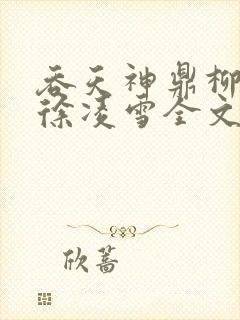 吞天神鼎柳
徐凌雪全文
欣蔷